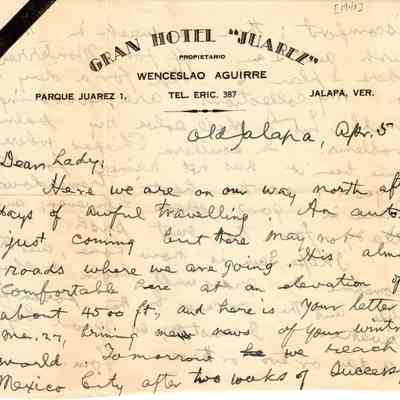 [1943]
GRAN HOTEL "JUAREZ"
PROPIETARIO
WENCESLAO AGUIRRE
PARQUE JUAREZ 1. TEL. ERIC. 387 JALAPA, VER.
Old Jalapa, Apr. 5
Dear Lady;
Here we are on our way north af
days of awful travelling. An auto
just coming but there may not b
roads where we are going. It is alm
comfortable here at an elevation of
about 4500 ft, and here is your letter
Mar. 27, brining news of your writn
world. Tomorrow we reach
Mexico City after two weeks of success